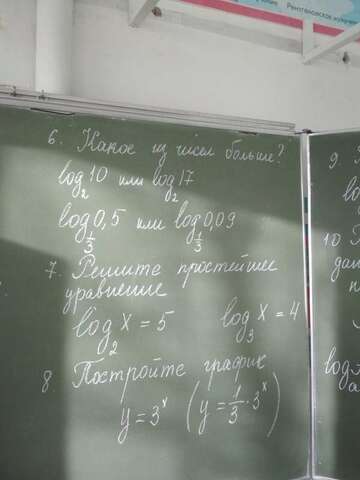 Рентгеновское излучен
6. Какое из чисел больше? 9.
log₂10 или log₂17
log_{1/3} 0,5 или log_{1/3} 0,09
7. Решите простейшее 10
уравнение
log₂ x = 5 log₃ x = 4
8. Постройте график
y = 3ˣ (y = 1/3 · 3ˣ)